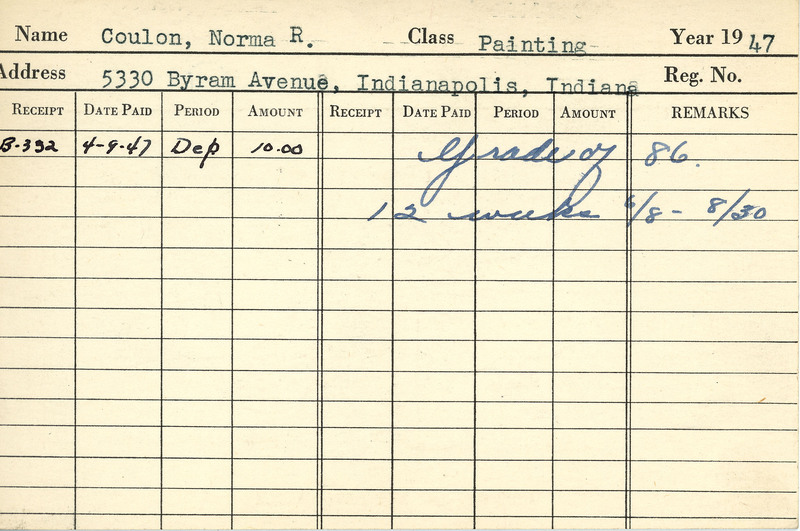 Name Coulon, Norma R. Class Painting Year 19 47
Address 5330 Byram Avenue, Indianapolis, Indiana Reg. No.
RECEIPT DATE PAID PERIOD AMOUNT RECEIPT DATE PAID PERIOD AMOUNT REMARKS
B-392 4-9-47 Dep 10.00 Grade of 86.
12 weeks 6/8 - 8/30